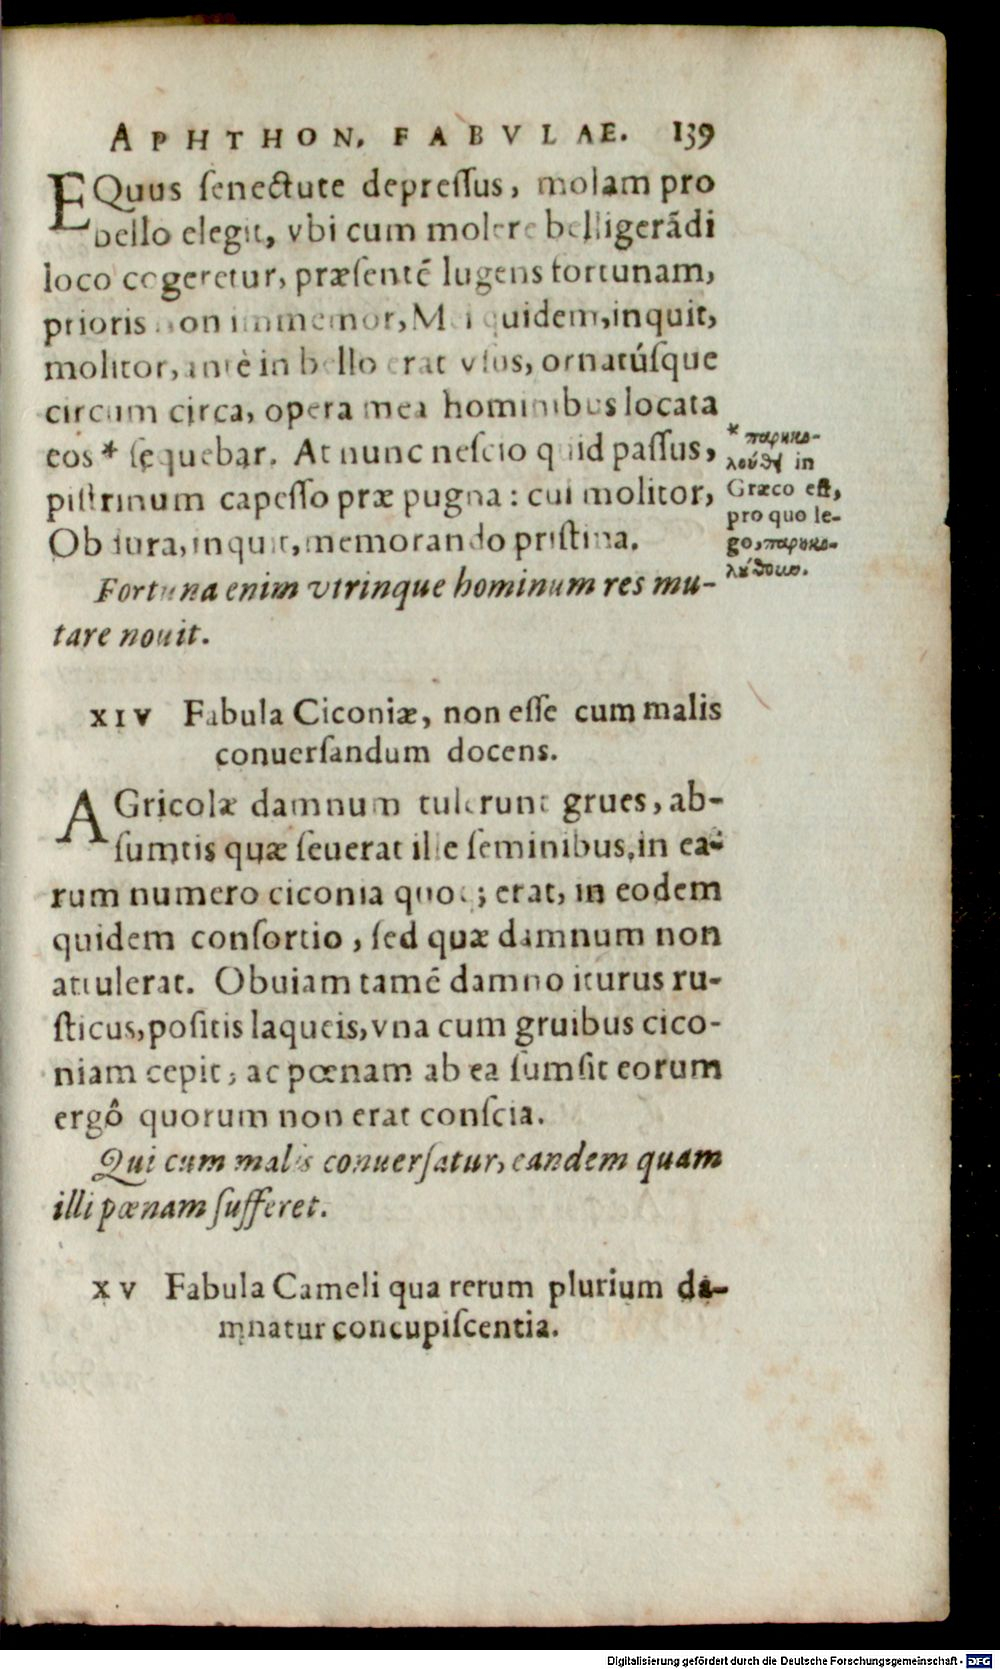 APHTHON. FABVLAE. 139
EQuus ſenectute depreſſus, molam pro
bello elegit, vbi cum molere belligerãdi
loco cogeretur, præſentẽ lugens fortunam,
prioris non immemor, Mei quidem, inquit,
molitor, antè in bello erat vſus, ornatúſque
circum circa, opera mea hominibus locata
eos * ſequebar. At nunc neſcio quid paſſus,
piſtrinum capeſſo præ pugna: cui molitor,
Obdura, inquit, memorando priſtina.
Fortuna enim vtrinque hominum res mu-
tare nouit.
* παρηκο-
λούθη in
Græco eſt,
pro quo le-
go, παρηκο-
λούθουν.
XIV Fabula Ciconiæ, non eſſe cum malis
conuerſandum docens.
AGricolæ damnum tulerunt grues, ab-
ſumtis quæ ſeuerat ille ſeminibus, in ea-
rum numero ciconia quoq; erat, in eodem
quidem conſortio, ſed quæ damnum non
attulerat. Obuiam tamẽ damno iturus ru-
ſticus, poſitis laqueis, vna cum gruibus cico-
niam cepit; ac pœnam ab ea ſumſit eorum
ergô quorum non erat conſcia.
Qui cum malis conuerſatur, eandem quam
illi pœnam ſufferet.
XV Fabula Cameli qua rerum plurium da-
mnatur concupiſcentia.
Digitalisierung gefördert durch die Deutsche Forschungsgemeinschaft - DFG